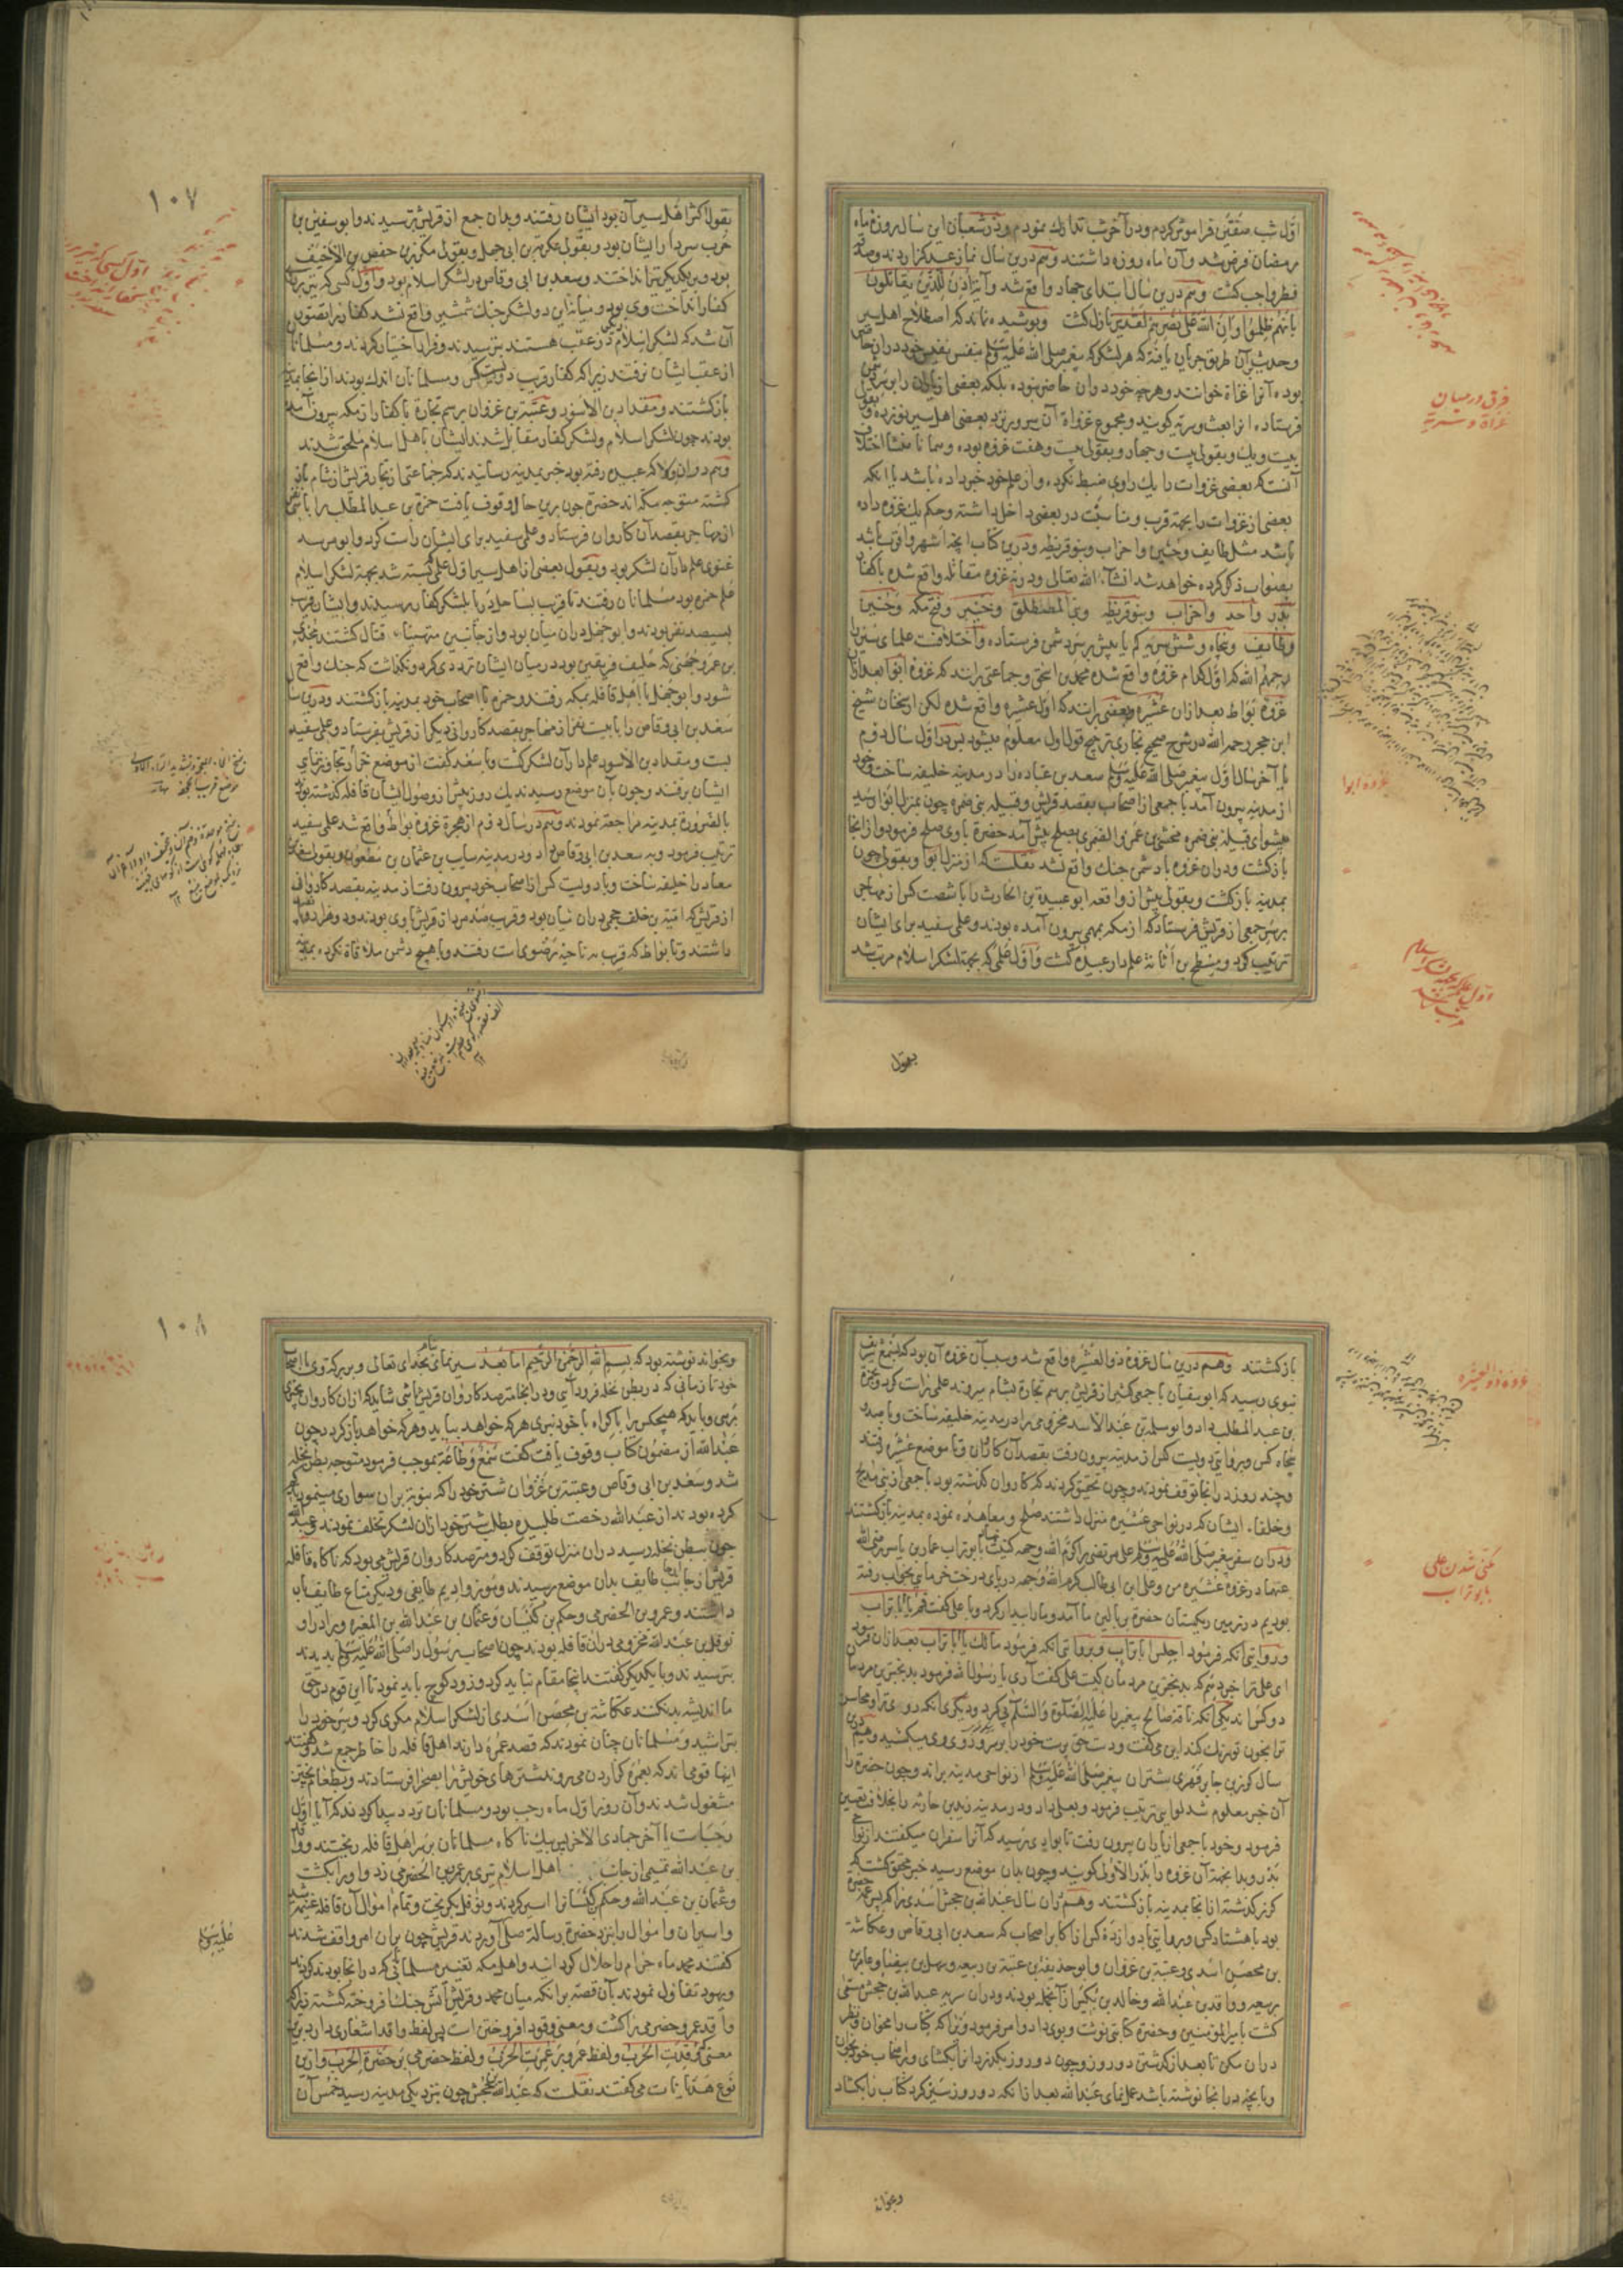 اول شب متفق فراموش کردم ودر آخر شب تدارک نمودم ودر شعبان این سال روزهٔ ماه
رمضان فرض شد وآن ماه روزه داشتند وهم درین سال نماز عید کزاردند وصدقهٔ
فطر واجب کشت وهم درین سال ابتدای جهاد واقع شد وآیة اذن للذین یقاتلون
بانهم ظلموا وان الله علی نصرهم لقدیر نازل کشت وپوشیده نماند که اصطلاح اهل سیر
وحدیث بران طریق جریان یافته که هر لشکر که پیغمبر صلی الله علیه وسلم بنفس نفیس خود دران حاضر
بوده آنرا غزاة خوانند وهرچه خود دران حاضر نبوده بلکه بعضی از یاران را بر سر دشمن
فرستاده انرا بعث وسریه کویند ومجموع غزوات آن سرور نزد بعضی اهل سیر نوزده وبقول
بیست ویک وبقولی بیست وچهار وبقولی بیست وهفت غزوه بوده وهمانا منشا اختلاف
آنست که بعضی غزوات را یک راوی ضبط نکرده واز علم خود خبر داده باشد یا انکه
بعضی از غزوات را بجهة قرب ومناسبت در بعضی داخل داشته وحکم یک غزوه داده
باشد مثل طایف وحنین واحزاب وبنو قریظه ودرین کتاب انچه اشهر واقرب باشد
بصواب ذکر کرده خواهد شد انشاء الله تعالی ودر نه غزوه مقاتله واقع شده با کفار
بدر واحد واحزاب وبنو قریظه وبنی المصطلق وخیبر وفتح مکه وحنین
وطایف وپنجاه وشش سریه کم یا بیش بر سر دشمن فرستاده واختلافست علمای سیر را
رحمهم الله که اول کدام غزوه واقع شده محمد بن اسحق وجماعتی برانند که غزوه ابوا بعد ازان
غزوه بواط بعد ازان عشیره وبعضی برانند که اول عشیره واقع شده لکن از سخنان شیخ
ابن حجر رحمه الله در شرح صحیح بخاری ترجیح قول اول معلوم میشود پس در اول سال دوم
یا آخر سال اول پیغمبر صلی الله علیه وسلم سعد بن عباده را در مدینه خلیفه ساخت وخود
از مدینه بیرون آمد با جمعی از اصحاب بقصد قریش وقبیله بنی ضمره چون بمنزل ابوا رسید
پیشوای قبیله بنی ضمره مخشی بن عمرو الضمری بصلح پیش آمد حضرة با وی صلح فرمود واز انجا
باز کشت ودران غزوه با دشمن جنک واقع نشد نقلست که از منزل ابوا وبقولی چون
بمدینه باز کشت وبقولی پیش از واقعه ابو عبیدة بن الحارث را با شصت کس از مهاجر
بر سر جمعی از قریش فرستاد که از مکه بمهمی بیرون آمده بودند وعلمی سفید برای ایشان
ترتیب کرد ومسطح بن اثاثه علمدار عبیده کشت واول علمی که بجهة لشکر اسلام مرتب شد
فرق در میان
غزاة وسریه
غزوه ابوا
اول علم که بجهة لشکر اسلام
مرتب شد
بقول
١٠٧
بقول اکثر اهل سیر آن بود ایشان رفتند وبدان جمع از قریش رسیدند وابو سفین بن
حرب سردار ایشان بود وبقولی عکرمة بن ابی جهل وبقولی مکرز بن حفص بن الاخیف
بود وبر یکدیکر تیر انداختند وسعد بن ابی وقاص در لشکر اسلام بود واول کسی که تیر بر
کفار انداخت وی بود ومیانه این دو لشکر جنک شمشیر واقع نشد کفار را تصور
آن شد که لشکر اسلام را در عقب هستند بترسیدند وفرار اختیار کردند ومسلمانان
از عقب ایشان نرفتند زیرا که کفار قریب دویست کس ومسلمانان اندک بودند از انجا بمدینه
باز کشتند ومقداد بن الاسود وعتبة بن غزوان برسم تجارة با کفار از مکه بیرون آمده
بودند چون لشکر اسلام ولشکر کفار مقابل شدند ایشان باهل اسلام ملحق شدند
وهم دران ولا که عبیده رفته بود خبر بمدینه رسانیدند که جماعتی از تجار قریش از شام باز
کشته متوجه مکه اند حضرة چون برین حال وقوف یافت حمزة بن عبد المطلب را با سی
از مهاجر بقصد آن کاروان فرستاد وعلمی سفید برای ایشان راست کرد وابو مرثد
غنوی علمدار آن لشکر بود وبقول بعضی از اهل سیر اول علمی که بسته شد بجهة لشکر اسلام
علم حمزه بود مسلمانان رفتند تا قریب بساحل دریا بلشکر کفار رسیدند وایشان قرب
بسیصد نفر بودند وابو جهل دران میان بود واز جانبین متهیاء قتال کشتند مجدی
بن عمرو جهنی که حلیف فریقین بود در میان ایشان تردد می کرد ونکذاشت که جنک واقع
شود وابو جهل با اهل قافله بمکه رفتند وحمزه با اصحاب خود بمدینه باز کشتند ودرین سال
سعد بن ابی وقاص را با بیست نفر از مهاجر بقصد کاروانی دیکر از قریش بفرستاد وعلمی سفید
بست ومقداد بن الاسود علمدار آن لشکر کشت وبا سعد کفت از موضع خرار تجاوز ننمای
ایشان برفتند وچون بآن موضع رسیدند یک روز پیش از وصول ایشان قافله کذشته بود
بالضرورة بمدینه مراجعة نمودند وهم در سال دوم از هجرة غزوهٔ بواط واقع شد علمی سفید
ترتیب فرمود وبه سعد بن ابی وقاص داد ودر مدینه سایب بن عثمان بن مظعون وبقولی سعد بن
معاذ را خلیفه ساخت وبا دویست کس از اصحاب خود بیرون رفت از مدینه بقصد کاروان
از قریش که امیة بن خلف جمحی دران میان بود وقرب صد مرد از قریش با وی بودند ودو هزار وپانصد
داشتند وتا بواط که قریب به ناحیه رضوی است رفتند وبا هیچ دشمن ملاقاة نکرده بمدینه
باز کشتند وهم درین سال غزوهٔ ذو العشیره واقع شد وسبب آن غزوه آن بود که بسمع شریف
نبوی رسید که ابو سفیان با جمعی کثیر از قریش برسم تجارة بشام میروند علمی راست کرد وبحمزة
بن عبد المطلب داد وابو سلمة بن عبد الاسد مخزومی را در مدینه خلیفه ساخت وبا صد و
پنجاه کس وبروایتی دویست کس از مدینه بیرون رفت بقصد آن کاروان وتا موضع عشیره رفتند
وچند روز در انجا توقف نمودند وچون تحقیق کردند که کاروان کذشته بود با جمعی از بنی مدلج
وحلفاء ایشان که در نواحی عشیره منزل داشتند صلح ومعاهده نموده بمدینه باز کشتند
ودران سفر پیغمبر صلی الله علیه وسلم علی مرتضی را کرم الله وجهه کنیت بابو تراب نهاد عمار بن یاسر رضی الله
عنهما در غزوه عشیره من وعلی ابن ابی طالب کرم الله وجهه در پای درخت خرمای بخواب رفته
بودیم در زمین ریکستان حضرة ببالین ما آمد وما را بیدار کرد وبا علی کفت قم یا ابا تراب
وروایتی آنکه فرمود اجلس ابا تراب وبروایتی آنکه فرمود مالک یا ابا تراب بعد ازان فرمود
ای علی ترا خبر دهم که بدبختترین مردمان کیست علی کفت آری یا رسول الله فرمود بدبختترین مردمان
دو کس اند یکی آنکه ناقه صالح پیغمبر را علیه الصلوة والسلم پی کرد ودیکری انکه روی ترا ومحاسن
ترا بخون تو رنک کند این می کفت ودست حق پرست خود را بر سر وروی وی میکشید وهم درین
سال کرز بن جابر فهری شتران پیغمبر صلی الله علیه وسلم از نواحی مدینه براند وچون حضرة را
آن خبر معلوم شد لوایی ترتیب فرمود وبعلی داد ودر مدینه زید بن حارثه را بخلافة تعیین
فرمود وخود با جمعی از یاران بیرون رفت تا بوادی رسید که آنرا سفوان میکفتند از نواحی
بدر وبدا بجهة آن غزوه را بدر الاولی کویند وچون بدان موضع رسید خبر محقق کشت که
کرز کذشته از انجا بمدینه باز کشتند وهم دران سال عبد الله بن جحش اسدی را که پسر عمه حضرة
بود با هشتاد کس وبروایتی با دوازده کس از اکابر اصحاب که سعد بن ابی وقاص وعکاشة
بن محصن اسدی وعتبة بن غزوان وابو حذیفة بن عتبة بن ربیعه وسهل بن بیضا وعامر بن
ربیعه وواقد بن عبد الله وخالد بن بکیر از آنجمله بودند ودران سریه عبد الله بن جحش مسمی
کشت بامیر المؤمنین وحضرة کتابتی نوشت وبوی داد وامر فرمود ویرا که کتاب را مخوان ونظر
دران مکن تا بعد از کذشتن دو روز وچون دو روز بکذرد انرا بکشای وبر اصحاب خود بخوان
وبا بچه در انجا نوشته باشد عمل نمای عبد الله بعد از آنکه دو روز سیر کرد کتاب را بکشاد
غزوه ذو العشیره
مکنی شدن علی
بابو تراب
وبخواند
١٠٨
وبخواند نوشته بود که بسم الله الرحمن الرحیم اما بعد سیر نمای بنام خدای تعالی وببرکة وی با اصحاب
خود تا زمانی که در بطن نخله فرود آیی ودر انجا مترصد کاروان قریش باشی شاید که ازان کاروان بخیری
برسی وباید که هیچکس را باکراه با خود نبری هر که خواهد بیاید وهر که خواهد باز کردد چون
عبد الله از مضمون کتاب وقوف یافت کفت سمع وطاعة بموجب فرموده متوجه بطن نخله
شد وسعد بن ابی وقاص وعتبة بن غزوان شتر خود را که بنوبة بران سواری مینمودند کم
کرده بودند از عبد الله رخصت طلبیده بطلب شتر خود ازان لشکر تخلف نمودند وعبد الله
چون ببطن نخله رسید دران منزل توقف کرد ومترصد کاروان قریش می بود که ناکاه قافله
قریش از جانب طایف بدان موضع رسیدند ومویز وادیم طایفی ودیکر متاع طایف بار
داشتند وعمرو بن الحضرمی وحکم بن کیسان وعثمان بن عبد الله بن المغیره وبرادر او
نوفل بن عبد الله مخزومی دران قافله بودند چون اصحاب رسول را صلی الله علیه وسلم بدیدند
بترسیدند وبا یکدیکر کفتند اینجا مقام نباید کرد وزود کوچ باید نمود تا این قوم در حق
ما اندیشه بد نکنند عکاشة بن محصن اسدی از لشکر اسلام مکری کرد وسر خود را
بتراشید ومسلمانان چنان نمودند که قصد عمره دارند اهل قافله را خاطر جمع شد وکفتند
اینها قومی اند که بعمره کزاردن می روند شترهای خویش را بصحرا فرستادند وبطعام پختن
مشغول شدند وآن روز اول ماه رجب بود ومسلمانان تردد پیدا کردند که آیا اول
رجب است یا آخر جمادی الاخر پس بیک ناکاه مسلمانان بر سر اهل قافله ریختند وواقد
بن عبد الله تمیمی از جانب اهل اسلام تیری بر عمرو بن الحضرمی زد واورا بکشت
وعثمان بن عبد الله وحکم بن کیسانرا اسیر کردند ونوفل بکریخت وتمام اموال آن قافله غنیمة شد
واسیران واموال را بنزد حضرة رسالة صلی آوردند قریش چون بران امر واقف شدند
کفتند محمد ماه حرام را حلال کردانید واهل مکه تعییر مسلمانی که در انجا بودند کردند
ویهود تفاؤل نمودند بآن قصه برانکه میان محمد وقریش آتش جنک افروخته کشته زیرا که
واقد عمرو حضرمی را کشت ومعنی وقود افروختن است پس لفظ واقد اشعاری دارد برین
معنی که وقدت الحرب ولفظ عمرو بر عمرت الحرب ولفظ حضرمی بر حضرة الحرب وازین
نوع هذیانات می کفتند نقلست که عبد الله جحش چون بنزدیکی مدینه رسید خمس آن
علیه وسلم